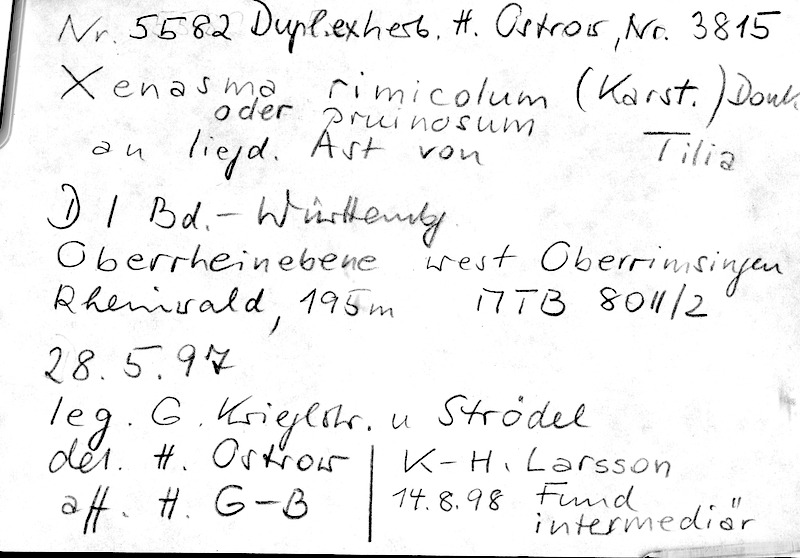 Nr. 5582 Dupl.exherb. H. Ostrow, Nr. 3815
Xenasma rimicolum (Karst.) Donk
oder pruinosum
an liegd. Ast von Tilia
D / Bd.-Württembg.
Oberrheinebene west Oberrimsingen
Rheinwald, 195m MTB 8011/2
28.5.97
leg. G. Krieglstr. u Strödel
det. H. Ostrow
aff. H. G-B
K-H. Larsson
14.8.98 Fund
intermediär